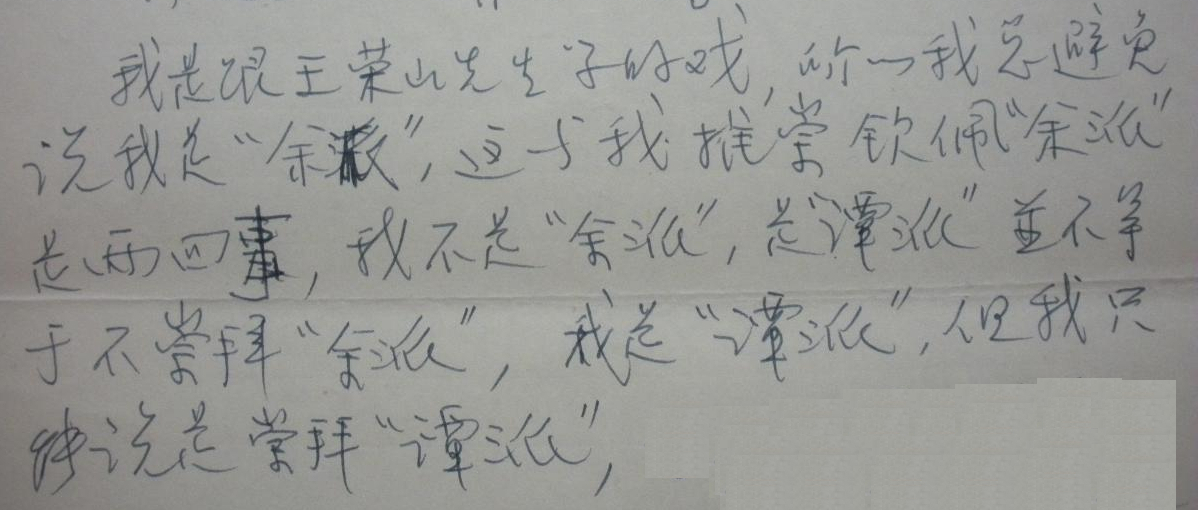 我是跟王荣山先生学的戏,所以我总避免
说我是“余派”,这与我推崇钦佩“余派”
是两回事,我不是“余派”,是“谭派”並不等
于不崇拜“余派”,我是“谭派”,但我只
能说是崇拜“谭派”,